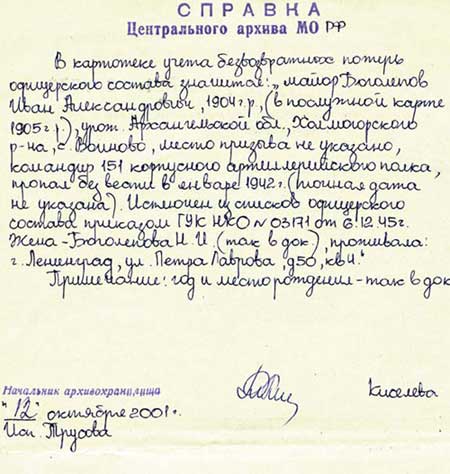 СПРАВКА
Центрального архива МО РФ
В картотеке учета безвозвратных потерь
офицерского состава значится: „майор Боголепов
Иван Александрович, 1904 г.р., (в послужной карте
1905 г.р.), урож. Архангельской обл., Холмогорского
р-на, с. Воиново, место призыва не указано,
командир 151 корпусного артиллерийского полка,
пропал без вести в январе 1942 г. (точная дата
не указана). Исключен из списков офицерского
состава приказом ГУК НКО N 03171 от 6.12.45г.
Жена - Боголепова Н. И. (так в док), проживала:
г. Ленинград, ул. Петра Лаврова, д50, кв 4."
Примечание: год и место рождения - так в док
Начальник архивохранилища
Киселева
"12" октября 2001 г.
Исп. Трусова